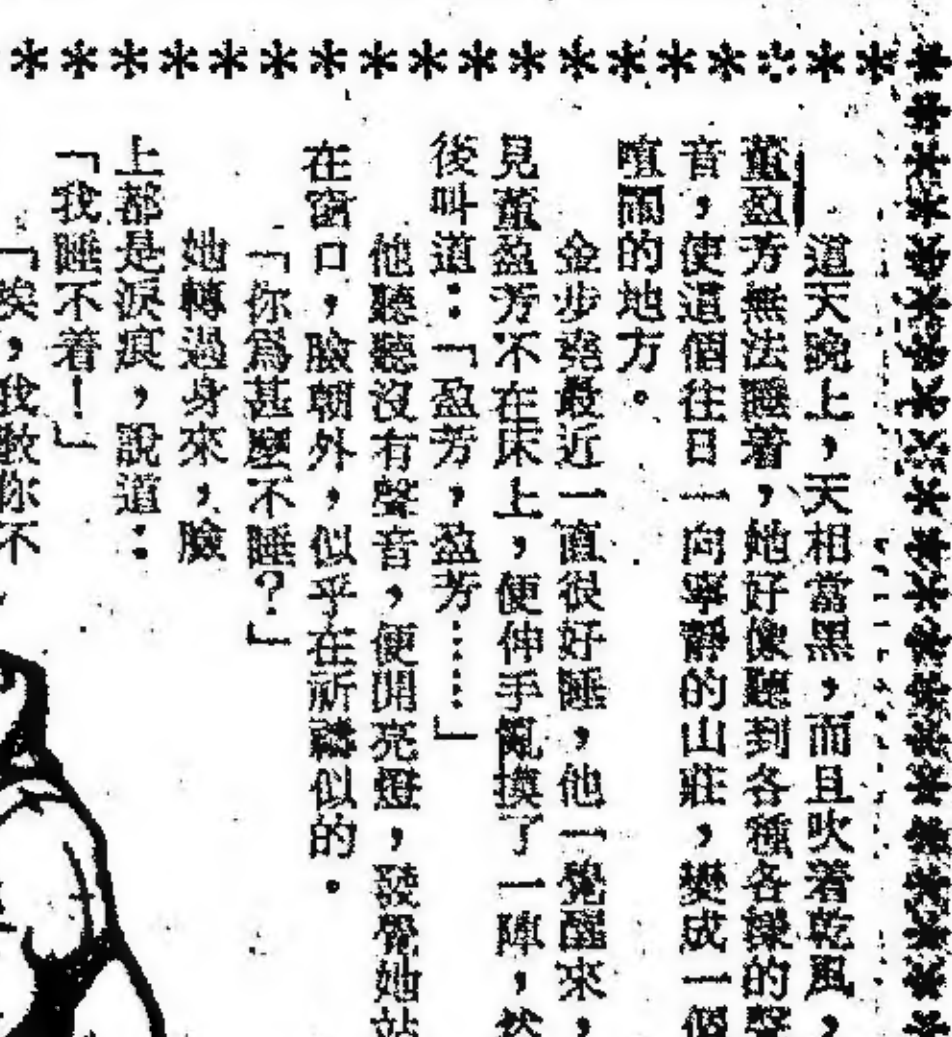 這天晚上，天相當黑，而且吹着乾風，
董盈芳無法睡着，她好像聽到各種各樣的聲
音，使這個往日一向寧靜的山莊，變成一個
喧鬧的地方。
金步堯最近一直很好睡，他一覺醒來，
見董盈芳不在床上，便伸手亂摸了一陣，然
後叫道：「盈芳，盈芳……」
他聽聽沒有聲音，便開亮燈，發覺她站
在窗口，臉朝外，似乎在祈禱似的。
「你爲甚麼不睡？」
她轉過身來，臉
上都是淚痕，說道：
「我睡不着！」
「唉，我敎你不